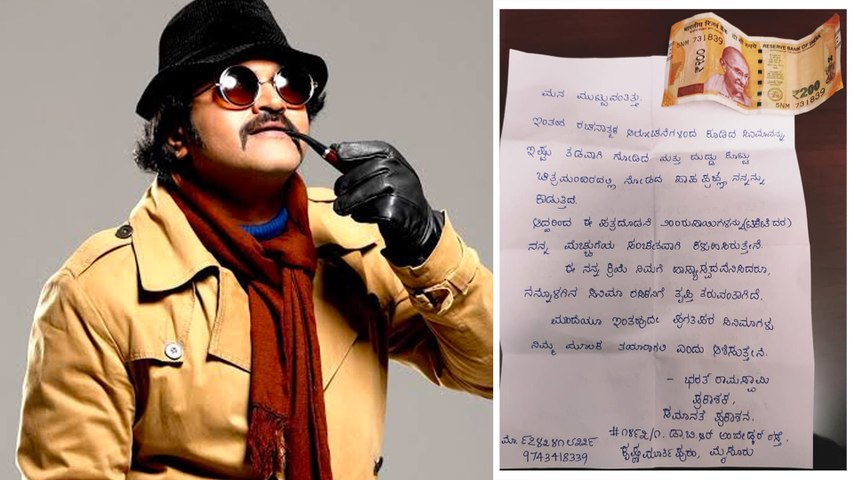 भारतीय रिज़र्व बैंक
RESERVE BANK OF INDIA
5NM 731839
₹200
5NM 731839
ಮನ ಮುಟ್ಟುವಂತಿತ್ತು.
ಇಂತಹ ರಚನಾತ್ಮಕ ಆಲೋಚನೆಗಳಿಂದ ಕೂಡಿದ ಸಿನಿಮಾವನ್ನು
ಇಷ್ಟು ತಡವಾಗಿ ನೋಡಿದೆ ಮತ್ತು ದುಡ್ಡು ಕೊಟ್ಟು
ಚಿತ್ರಮಂದಿರದಲ್ಲಿ ನೋಡದ ಪಾಪ ಪ್ರಜ್ಞೆ ನನ್ನನ್ನು
ಕಾಡುತ್ತಿದೆ.
ಆದ್ದರಿಂದ ಈ ಪತ್ರದೊಡನೆ 200ರೂಪಾಯಿಗಳನ್ನು(ಟಿಕೆಟ್ ದರ)
ನನ್ನ ಮೆಚ್ಚುಗೆಯ ಸಂಕೇತವಾಗಿ ಕಳುಹಿಸಿರುತ್ತೇನೆ.
ಈ ನನ್ನ ಕ್ರಿಯೆ ನಿಮಗೆ ಹಾಸ್ಯಾಸ್ಪದವೆನಿಸಿದರೂ,
ನನ್ನೊಳಗಿನ ಸಿನಿಮಾ ರಸಿಕನಿಗೆ ತೃಪ್ತಿ ತರುವಂತಾಗಿದೆ.
ಮುಂದೆಯೂ ಇಂತಹುದೇ ಪ್ರಗತಿಪರ ಸಿನಿಮಾಗಳು
ನಿಮ್ಮ ಮೂಲಕ ತಯಾರಾಗಲಿ ಎಂದು ಆಶಿಸುತ್ತೇನೆ.
- ಭರತ್ ರಾಮಸ್ವಾಮಿ
ಪ್ರಕಾಶಕ,
ಸಮಾನತೆ ಪ್ರಕಾಶನ.
#೧೪೯೭/೧, ಡಾ.ಬಿ.ಆರ್ ಅಂಬೇಡ್ಕರ್ ರಸ್ತೆ,
ಕೃಷ್ಣಮೂರ್ತಿಪುರಂ, ಮೈಸೂರು
ಮೊ.
9743418339